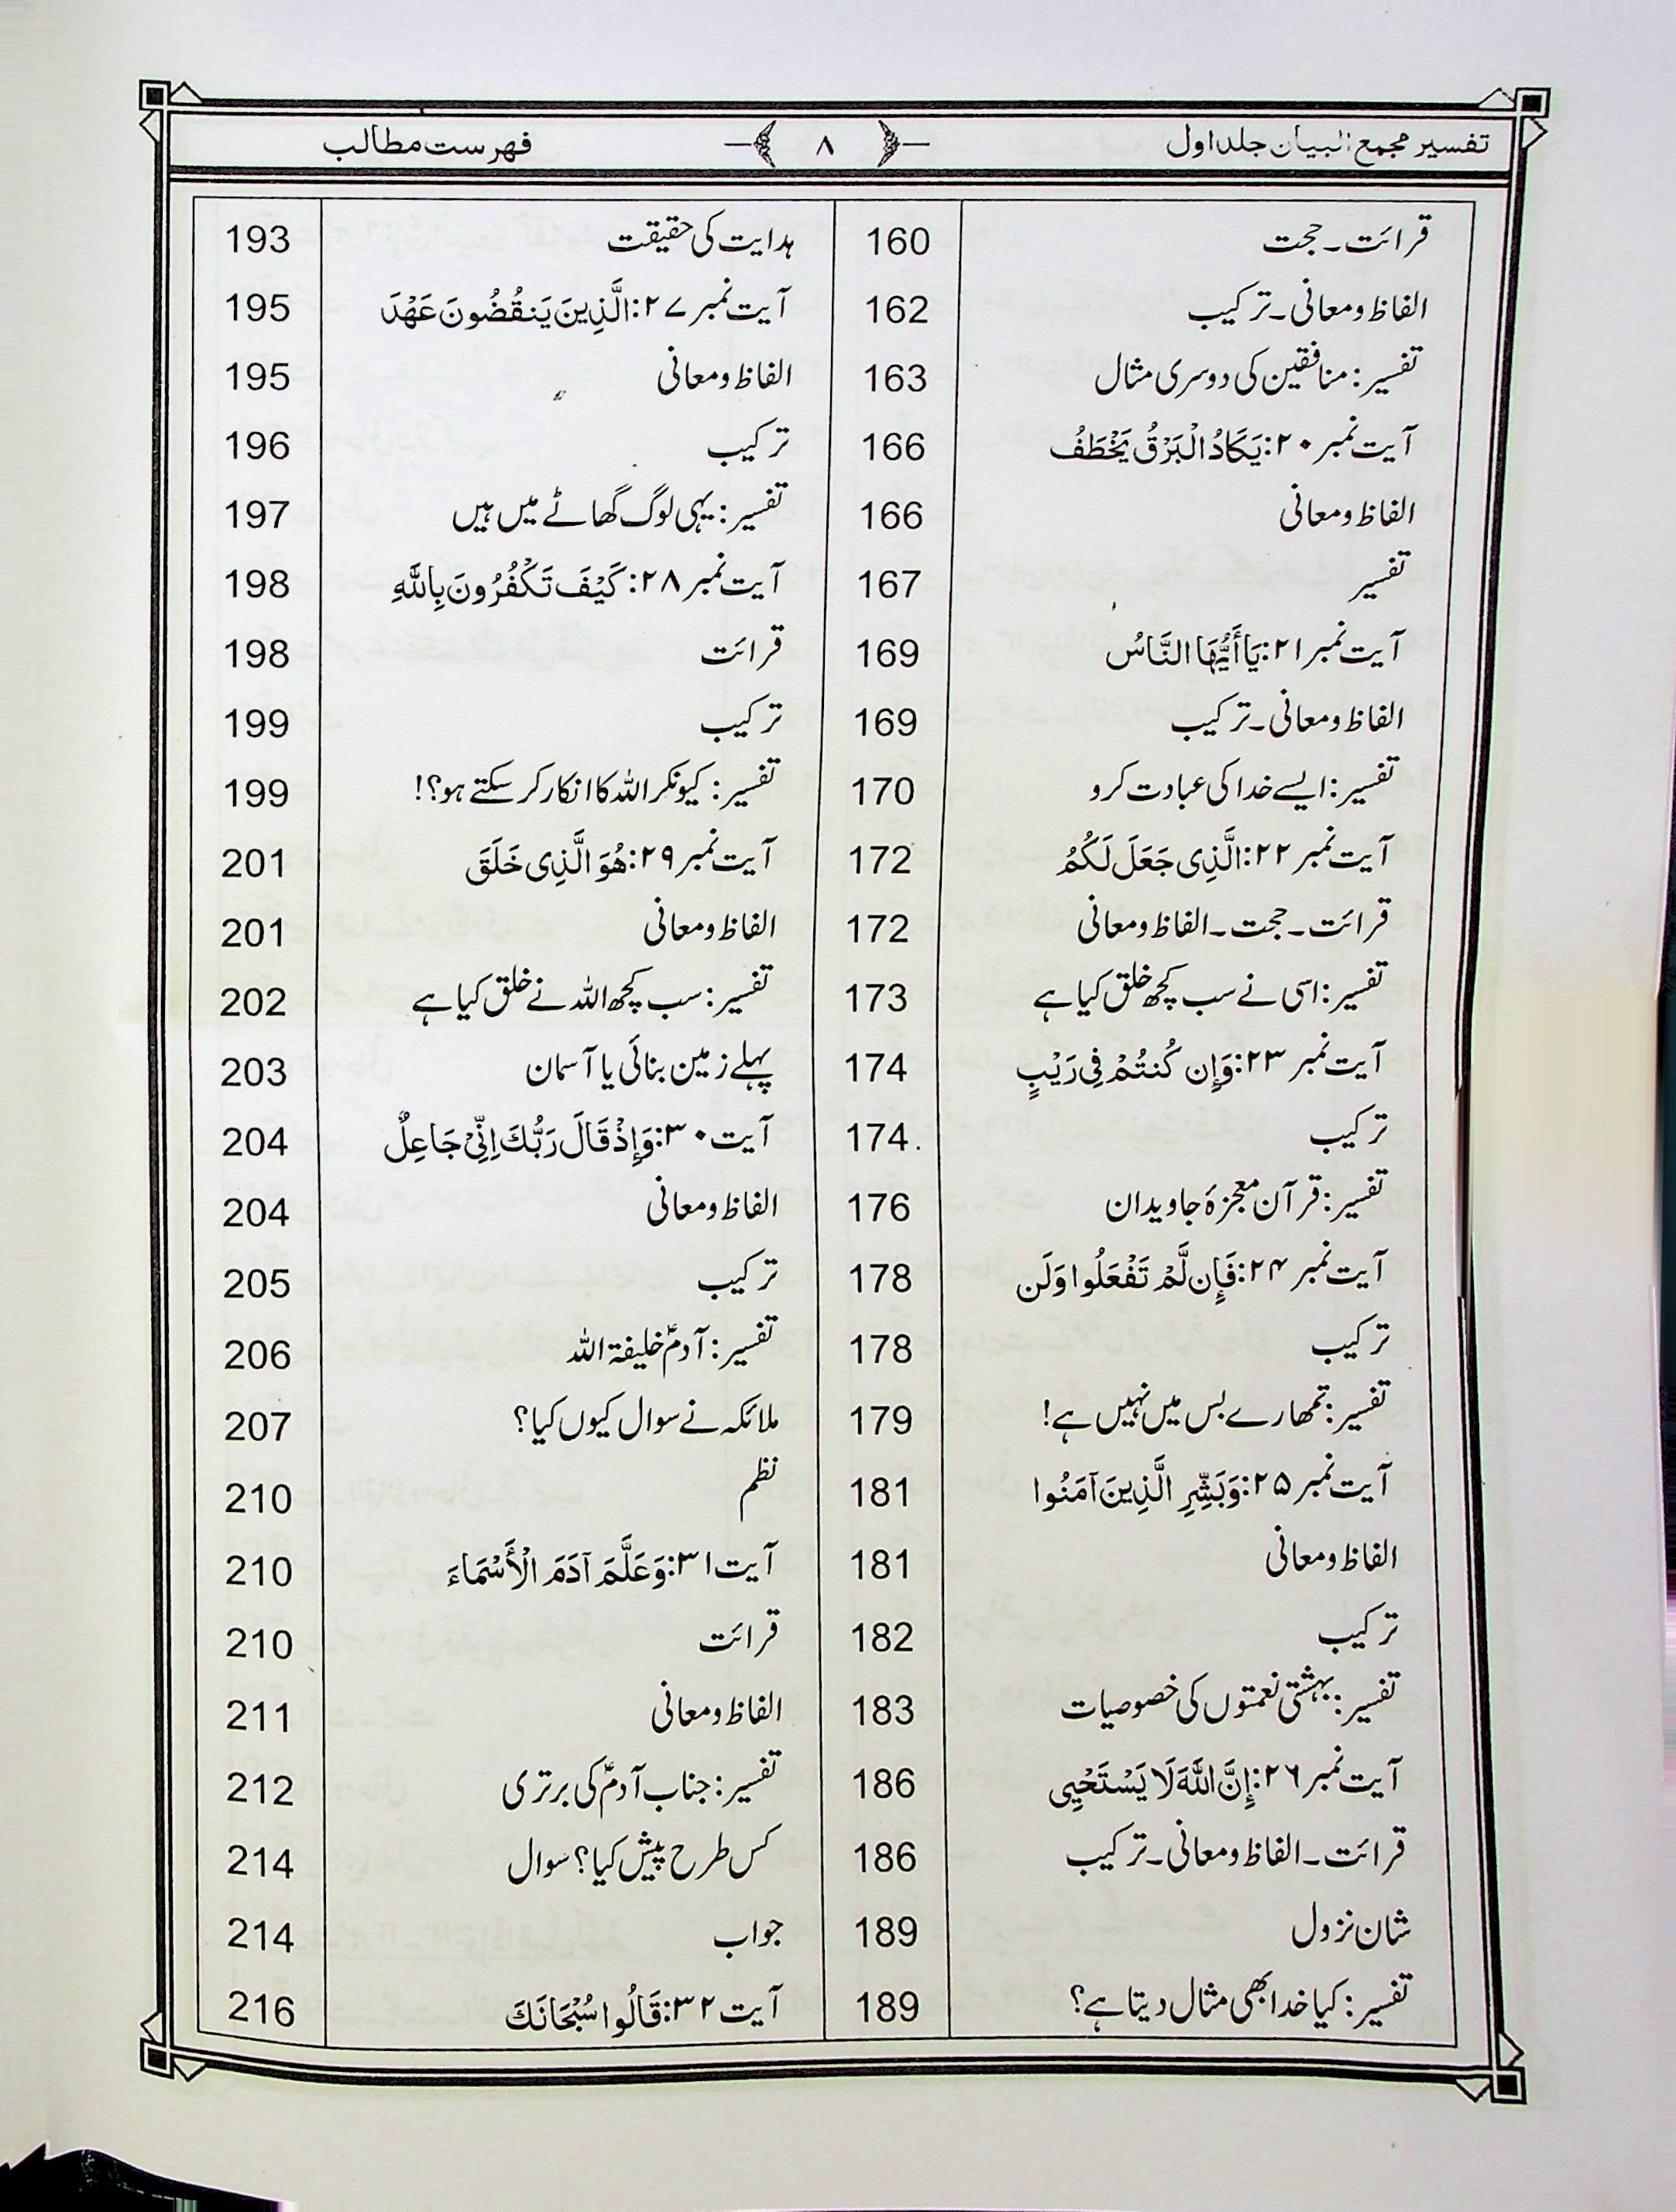 تفسیر مجمع البیان جلد اول ۸ فہرست مطالب
قرائت۔حجت 160
الفاظ و معانی۔ترکیب 162
تفسیر: منافقین کی دوسری مثال 163
آیت نمبر ۲۰: يَكَادُ الْبَرْقُ يَخْطَفُ 166
الفاظ و معانی 166
تفسیر 167
آیت نمبر ۲۱: يَا أَيُّهَا النَّاسُ 169
الفاظ و معانی۔ترکیب 169
تفسیر: ایسے خدا کی عبادت کرو 170
آیت نمبر ۲۲: الَّذِی جَعَلَ لَكُمُ 172
قرائت۔حجت۔الفاظ و معانی 172
تفسیر: اسی نے سب کچھ خلق کیا ہے 173
آیت نمبر ۲۳: وَإِن كُنتُمْ فِی رَيْبٍ 174
ترکیب 174
تفسیر: قرآن معجزۂ جاویدان 176
آیت نمبر ۲۴: فَإِن لَّمْ تَفْعَلُوا وَلَن 178
ترکیب 178
تفسیر: تمھارے بس میں نہیں ہے! 179
آیت نمبر ۲۵: وَبَشِّرِ الَّذِينَ آمَنُوا 181
الفاظ و معانی 181
ترکیب 182
تفسیر: بہشتی نعمتوں کی خصوصیات 183
آیت نمبر ۲۶: إِنَّ اللَّهَ لَا يَسْتَحْيِی 186
قرائت۔الفاظ و معانی۔ترکیب 186
شان نزول 189
تفسیر: کیا خدا بھی مثال دیتا ہے؟ 189
ہدایت کی حقیقت 193
آیت نمبر ۲۷: الَّذِينَ يَنقُضُونَ عَهْدَ 195
الفاظ و معانی 195
ترکیب 196
تفسیر: یہی لوگ گھاٹے میں ہیں 197
آیت نمبر ۲۸: كَيْفَ تَكْفُرُونَ بِاللَّهِ 198
قرائت 198
ترکیب 199
تفسیر: کیونکر اللہ کا انکار کر سکتے ہو؟! 199
آیت نمبر ۲۹: هُوَ الَّذِی خَلَقَ 201
الفاظ و معانی 201
تفسیر: سب کچھ اللہ نے خلق کیا ہے 202
پہلے زمین بنائی یا آسمان 203
آیت ۳۰: وَإِذْ قَالَ رَبُّكَ اِنِّیْ جَاعِلٌ 204
الفاظ و معانی 204
ترکیب 205
تفسیر: آدمؑ خلیفۃ اللہ 206
ملائکہ نے سوال کیوں کیا؟ 207
نظم 210
آیت ۳۱: وَعَلَّمَ آدَمَ الْأَسْمَاءَ 210
قرائت 210
الفاظ و معانی 211
تفسیر: جناب آدمؑ کی برتری 212
کس طرح پیش کیا؟ سوال 214
جواب 214
آیت ۳۲: قَالُوا سُبْحَانَكَ 216